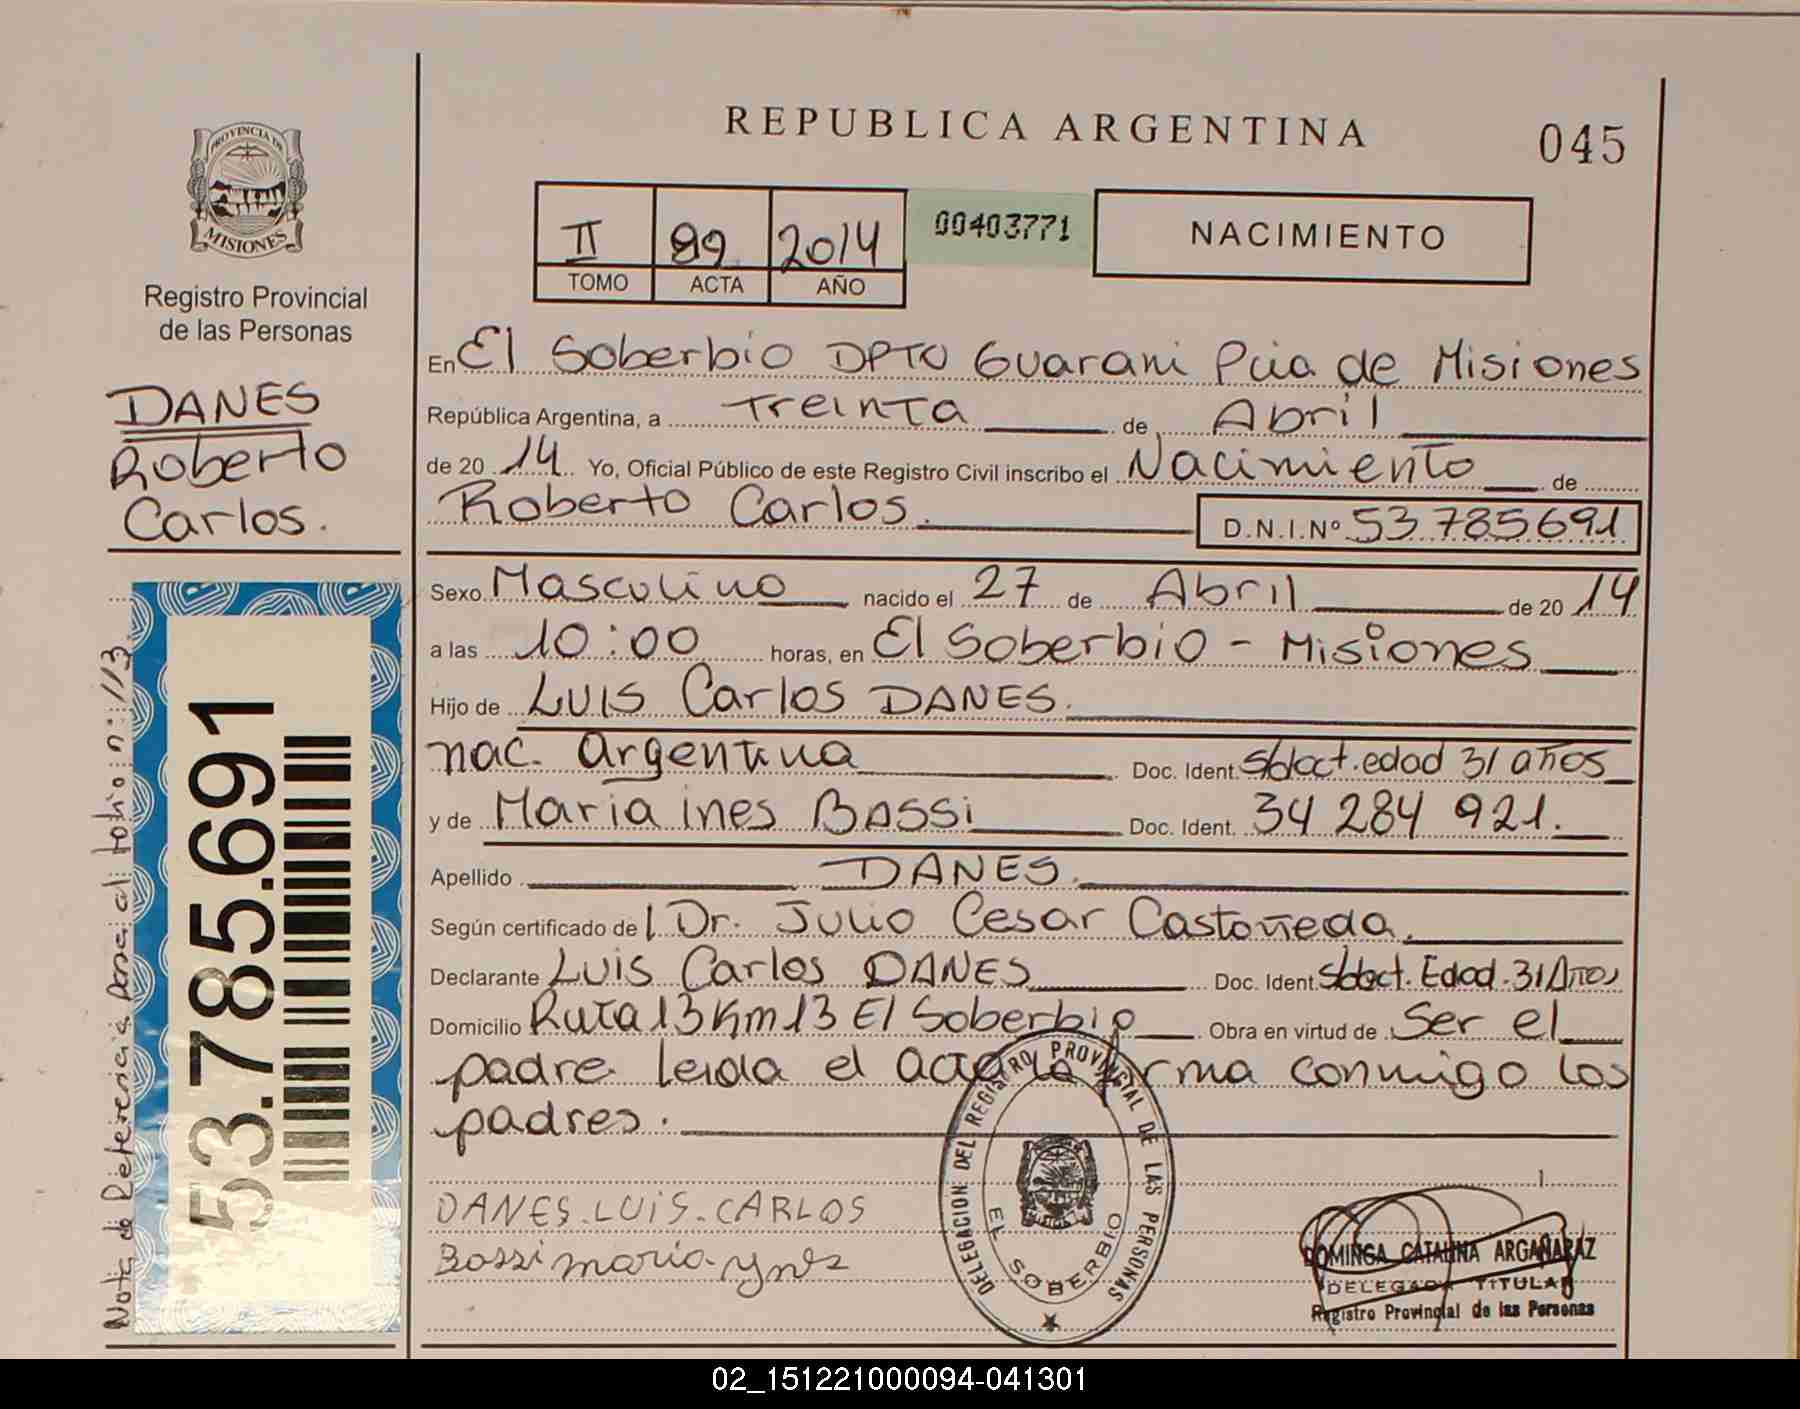 REPUBLICA ARGENTINA
045
PROVINCIA DE
MISIONES
Registro Provincial
de las Personas
II 99 2014
TOMO ACTA AÑO
00403771
NACIMIENTO
DANES
Roberto
Carlos.
En El Soberbio DPTO Guarani Pcia de Misiones
República Argentina, a Treinta de Abril
de 20 14 Yo, Oficial Público de este Registro Civil inscribo el Nacimiento de
Roberto Carlos. D.N.I.Nº 53785691
Sexo Masculino nacido el 27 de Abril de 20 14
a las 10:00 horas, en El Soberbio - Misiones
Hijo de Luis Carlos DANES.
nac. argentina Doc. Ident. S/doct. edad 31 años
y de Maria ines BOSSi Doc. Ident. 34 284 921.
Apellido DANES.
Según certificado de l Dr. Julio Cesar Castañeda.
Declarante Luis Carlos DANES Doc. Ident. S/doct. Edad. 31 Años
Domicilio Ruta 13 Km 13 El Soberbio Obra en virtud de Ser el
padre leida el acta la firma conmigo los
padres.
DANES. LUiS. CARLOS
Bossi maria ynes
DELEGACION DEL REGISTRO PROVINCIAL DE LAS PERSONAS
EL SOBERBIO
DOMINGA CATALINA ARGAÑARAZ
DELEGADA TITULAR
Registro Provincial de las Personas
53.785.691
Nota de Referencia Pasa al folio: nº: 113.
02_151221000094-041301